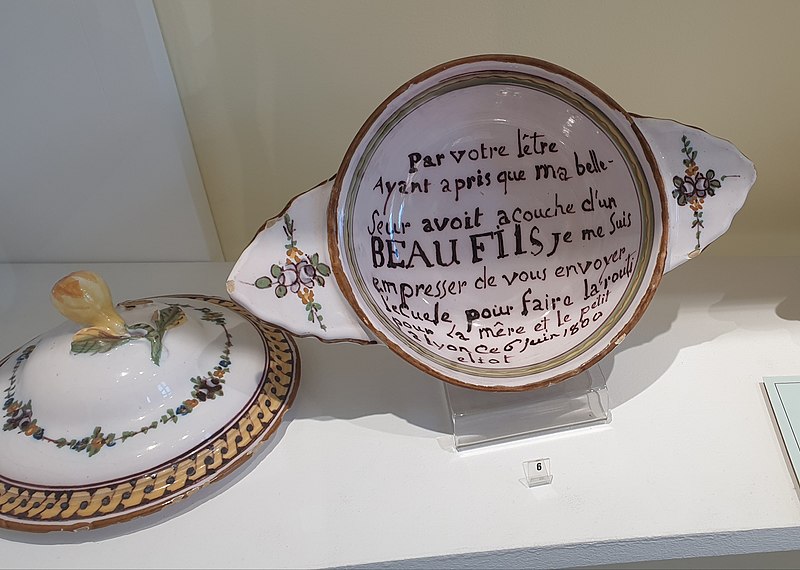 Par votre lêtre
Ayant apris que ma belle-
Seur avoit acouche d'un
BEAU FIlS Je me Suis
empresser de vous envoyer
l'ecuele pour faire la routi
pour la mère et le petit
a lyon ce 6 Juin 1800
eltot
6